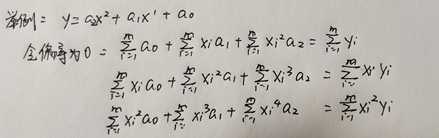 举例: y = a₂x² + a₁x' + a₀
全偏导为0: \sum_{i=1}^{m} a₀ + \sum_{i=1}^{m} xᵢa₁ + \sum_{i=1}^{m} xᵢ²a₂ = \sum_{i=1}^{m} yᵢ
\sum_{i=1}^{m} xᵢa₀ + \sum_{i=1}^{m} xᵢ²a₁ + \sum_{i=1}^{m} xᵢ³a₂ = \sum_{i=1}^{m} xᵢyᵢ
\sum_{i=1}^{m} xᵢ²a₀ + \sum_{i=1}^{m} xᵢ³a₁ + \sum_{i=1}^{m} xᵢ⁴a₂ = \sum_{i=1}^{m} xᵢ²yᵢ